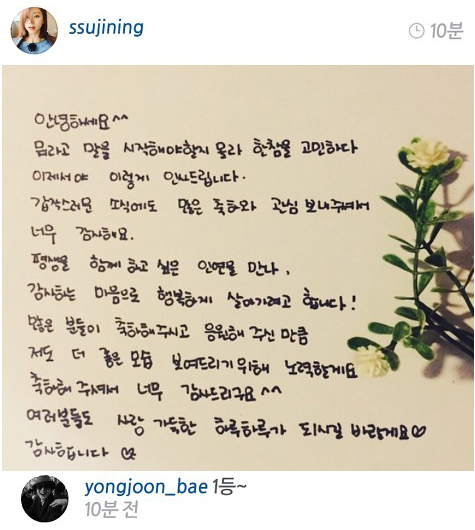 ssujining
10분
안녕하세요^^
뭐라고 말을 시작해야할지 몰라 한참을 고민하다
이제서야 이렇게 인사드립니다.
갑작스러운 소식에도 많은 축하와 관심 보내주셔서
너무 감사해요.
평생을 함께 하고 싶은 인연을 만나,
감사하는 마음으로 행복하게 살아가려고 합니다!
많은 분들이 축하해주시고 응원해 주신 만큼
저도 더 좋은 모습 보여드리기 위해 노력할게요
축하해 주셔서 너무 감사드리구요^^
여러분들도 사랑 가득한 하루하루가 되시길 바랄게요♡
감사합니다 ♡
yongjoon_bae 1등~
10분 전